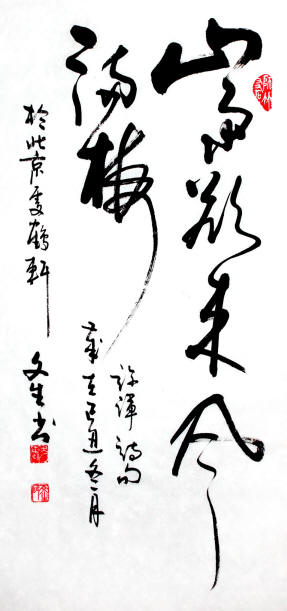 山雨欲来风
满楼
许浑诗句
岁在己丑冬月
於北京雙鶴軒
文生书